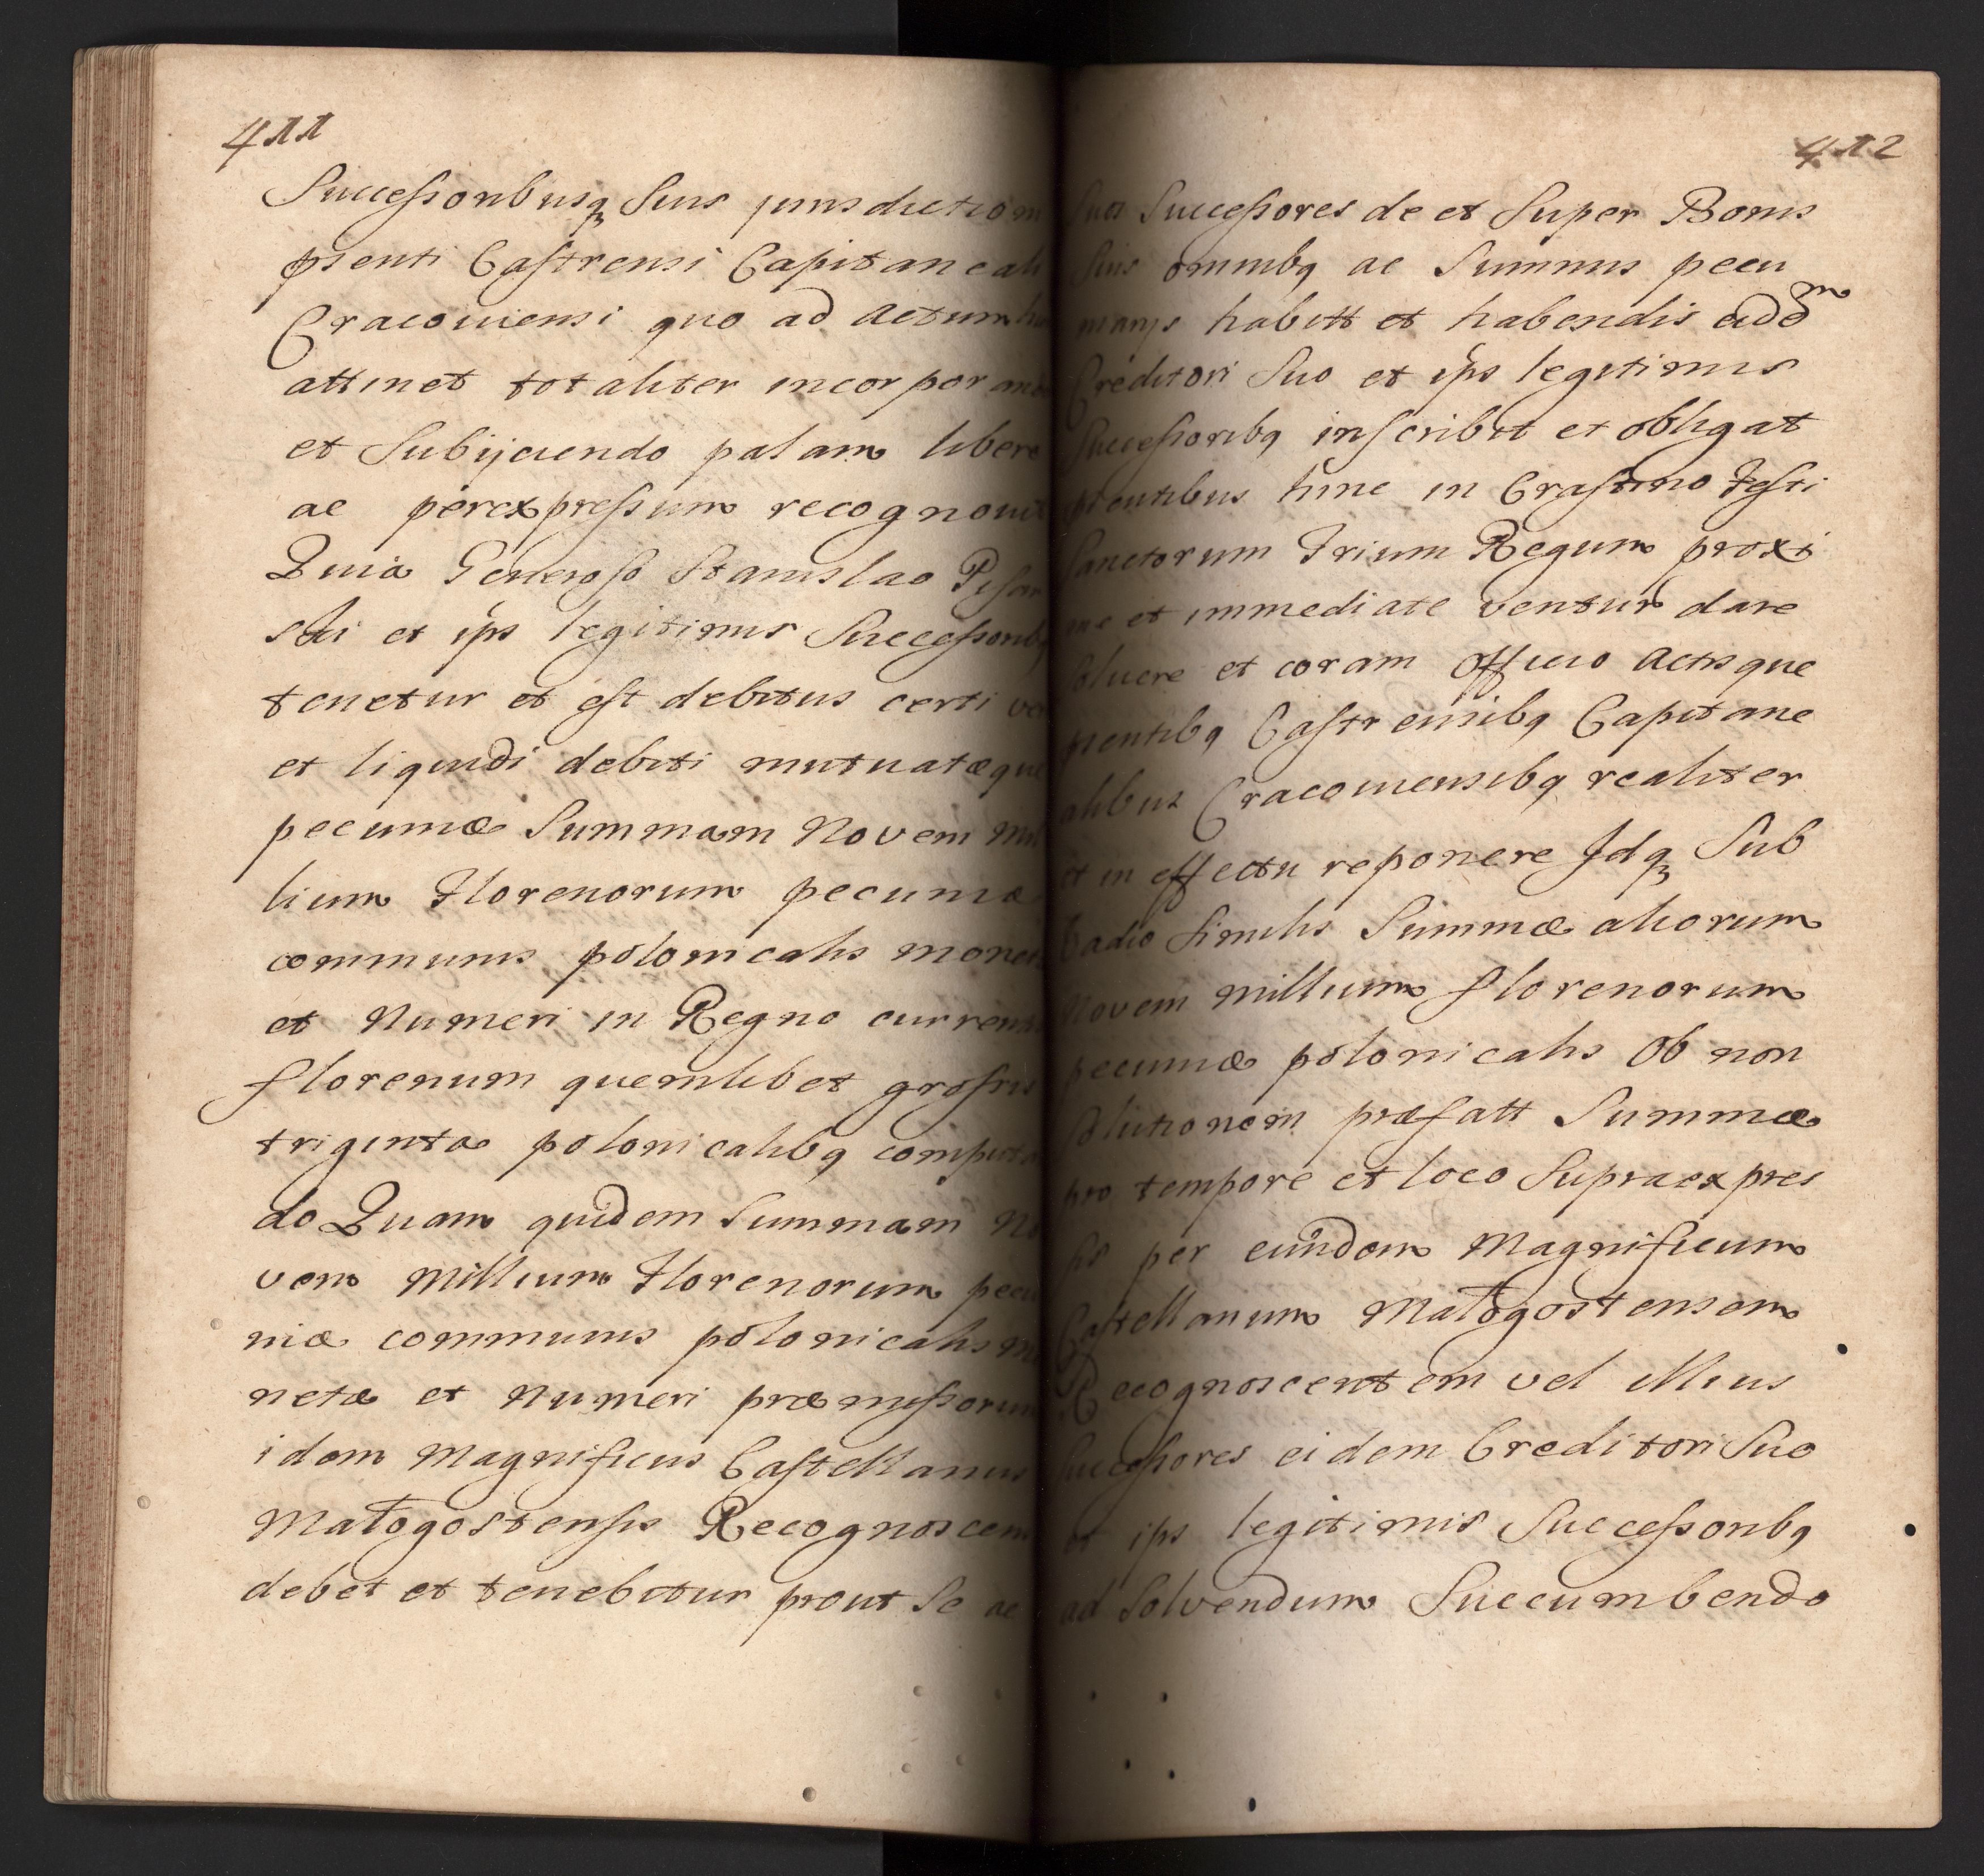 411
Successoribusq Suis jurisdictioni
pſenti Castrensi Capitaneali
Cracoviensi quo ad Actum
attinet totaliter incorporando
et Subijciendo palam libere
ac perexpressum recognovit
Quia Generoso Stanislao
ski et ips legitimis Successoribq
tenetur et est debitus certi
et liquidi debiti mutuatæque
pecuniæ Summam Novem Mil
lium Florenorum pecuniæ
communis polonicalis monetæ
et Numeri in Regno currentis
florenum quemlibet grossis
triginta polonicalibq computan
do Quam quidem Summam No
vem Millium Florenorum pecu
niæ communis polonicalis mo
netæ et Numeri præmissorum
idem Magnificus Castellanus
Małogostensis Recognoscens
debet et tenebitur prout Se ac
412
Suos Successores de et Super Bonis
Suis omnibq ac Summis pecu
niarys habitt et habendis eidem
Creditori Suo et ips legitimis
Successoribq inscribit et obligat
pſentibus hinc in Crastino Festi
Sanctorum Trium Regum proxi
me et immediate ventur dare
Solvere et coram Officio Actisque
pſentibq Castrensibq Capitane
alibus Cracoviensibq realiter
et in effectu reponere Idq Sub
Vadio Similis Summæ aliorum
Novem Millium florenorum
pecuniæ polonicalis Ob non
Solutionem præfatt Summæ
pro tempore et loco Supraexpres
sis per eundem Magnificum
Castellanum Małogostensem
Recognoscentem vel illius
Successores eidem Creditori Suo
et ips legitimis Successoribq
ad Solvendum Succumbendo